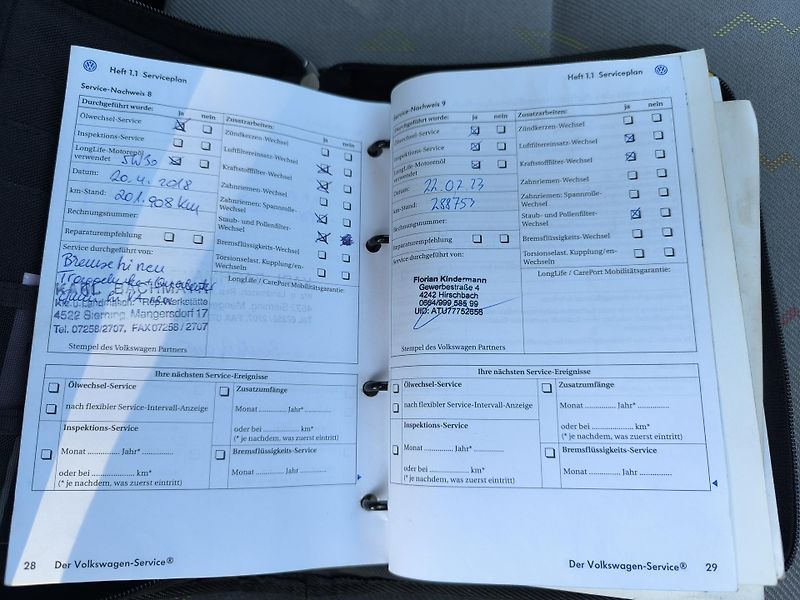 Heft 1.1 Serviceplan
Service-Nachweis 8
Durchgeführt wurde: ja nein
Ölwechsel-Service
Inspektions-Service
LongLife-Motorenöl
verwendet 5W30
Datum: 20.4.2018
km-Stand: 201.908 km
Rechnungsnummer:
Reparaturempfehlung
Service durchgeführt von:
Bremse hi neu
4522 Sierning, Mangersdorf 17
Tel. 07258/2707, FAX 07258 / 2707
Stempel des Volkswagen Partners
Zusatzarbeiten: ja nein
Zündkerzen-Wechsel
Luftfiltereinsatz-Wechsel
Kraftstofffilter-Wechsel
Zahnriemen-Wechsel
Zahnriemen; Spannrolle-
Wechsel
Staub- und Pollenfilter-
Wechsel
Bremsflüssigkeits-Wechsel
Torsionselast. Kupplung/en-
Wechseln
LongLife / CarePort Mobilitätsgarantie:
Ihre nächsten Service-Ereignisse
Ölwechsel-Service
nach flexibler Service-Intervall-Anzeige
Inspektions-Service
Monat .............. Jahr* ..............
oder bei .................. km*
(* je nachdem, was zuerst eintritt)
Zusatzumfänge
Monat .............. Jahr* ..............
oder bei .................. km*
(* je nachdem, was zuerst eintritt)
Bremsflüssigkeits-Service
Monat .............. Jahr ..............
28 Der Volkswagen-Service®
Heft 1.1 Serviceplan
Service-Nachweis 9
Durchgeführt wurde: ja nein
Ölwechsel-Service
Inspektions-Service
LongLife-Motorenöl
verwendet
Datum: 22.02.23
km-Stand: 288753
Rechnungsnummer:
Reparaturempfehlung
Service durchgeführt von:
Florian Kindermann
Gewerbestraße 4
4242 Hirschbach
0664/999 585 99
UID: ATU77752656
Stempel des Volkswagen Partners
Zusatzarbeiten: ja nein
Zündkerzen-Wechsel
Luftfiltereinsatz-Wechsel
Kraftstofffilter-Wechsel
Zahnriemen-Wechsel
Zahnriemen; Spannrolle-
Wechsel
Staub- und Pollenfilter-
Wechsel
Bremsflüssigkeits-Wechsel
Torsionselast. Kupplung/en-
Wechseln
LongLife / CarePort Mobilitätsgarantie:
Ihre nächsten Service-Ereignisse
Ölwechsel-Service
nach flexibler Service-Intervall-Anzeige
Inspektions-Service
Monat .............. Jahr* ..............
oder bei .................. km*
(* je nachdem, was zuerst eintritt)
Zusatzumfänge
Monat .............. Jahr* ..............
oder bei .................. km*
(* je nachdem, was zuerst eintritt)
Bremsflüssigkeits-Service
Monat .............. Jahr ..............
Der Volkswagen-Service® 29